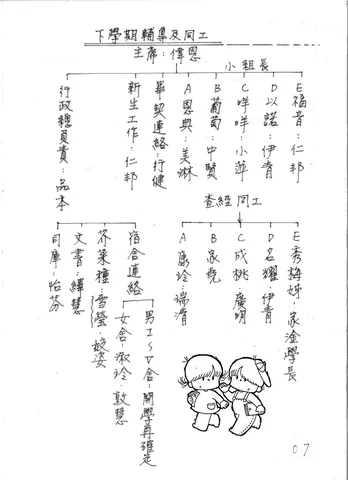 下學期輔導及同工
主席：偉恩
小組長
E福音：仁邦
D以諾：伊青
C咩咩：小萍
B葡萄：中賢
A恩典：美琳
畢契連絡：行健
新生工作：仁邦
行政總負責：品本
查經同工
E秀梅姊：家淦學長
D名耀：伊青
C成桃：廣明
B家堯
A康玲：瑞濱
宿舍連絡
男工～V舍：開學再確定
女舍：淑玲、敦慧
芥菜種：雪瑩、姣姿
文書：緯慧
司庫：怡芬
07